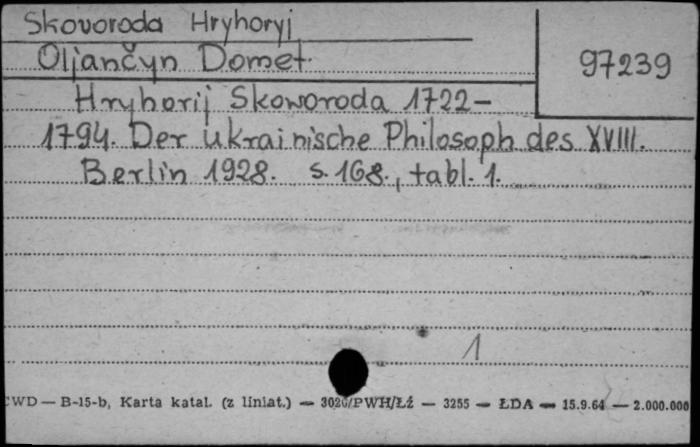 Skovoroda Hryhoryj
Oljančyn Domet.
97239
Hryhorij Skoworoda 1722-
1794. Der ukrainische Philosoph des XVIII.
Berlin 1928. s. 168., tabl. 1.
1
CWD — B-15-b, Karta katal. (z liniat.) — 3020/PWH/Łź — 3255 — ŁDA — 15.9.64 — 2.000.000